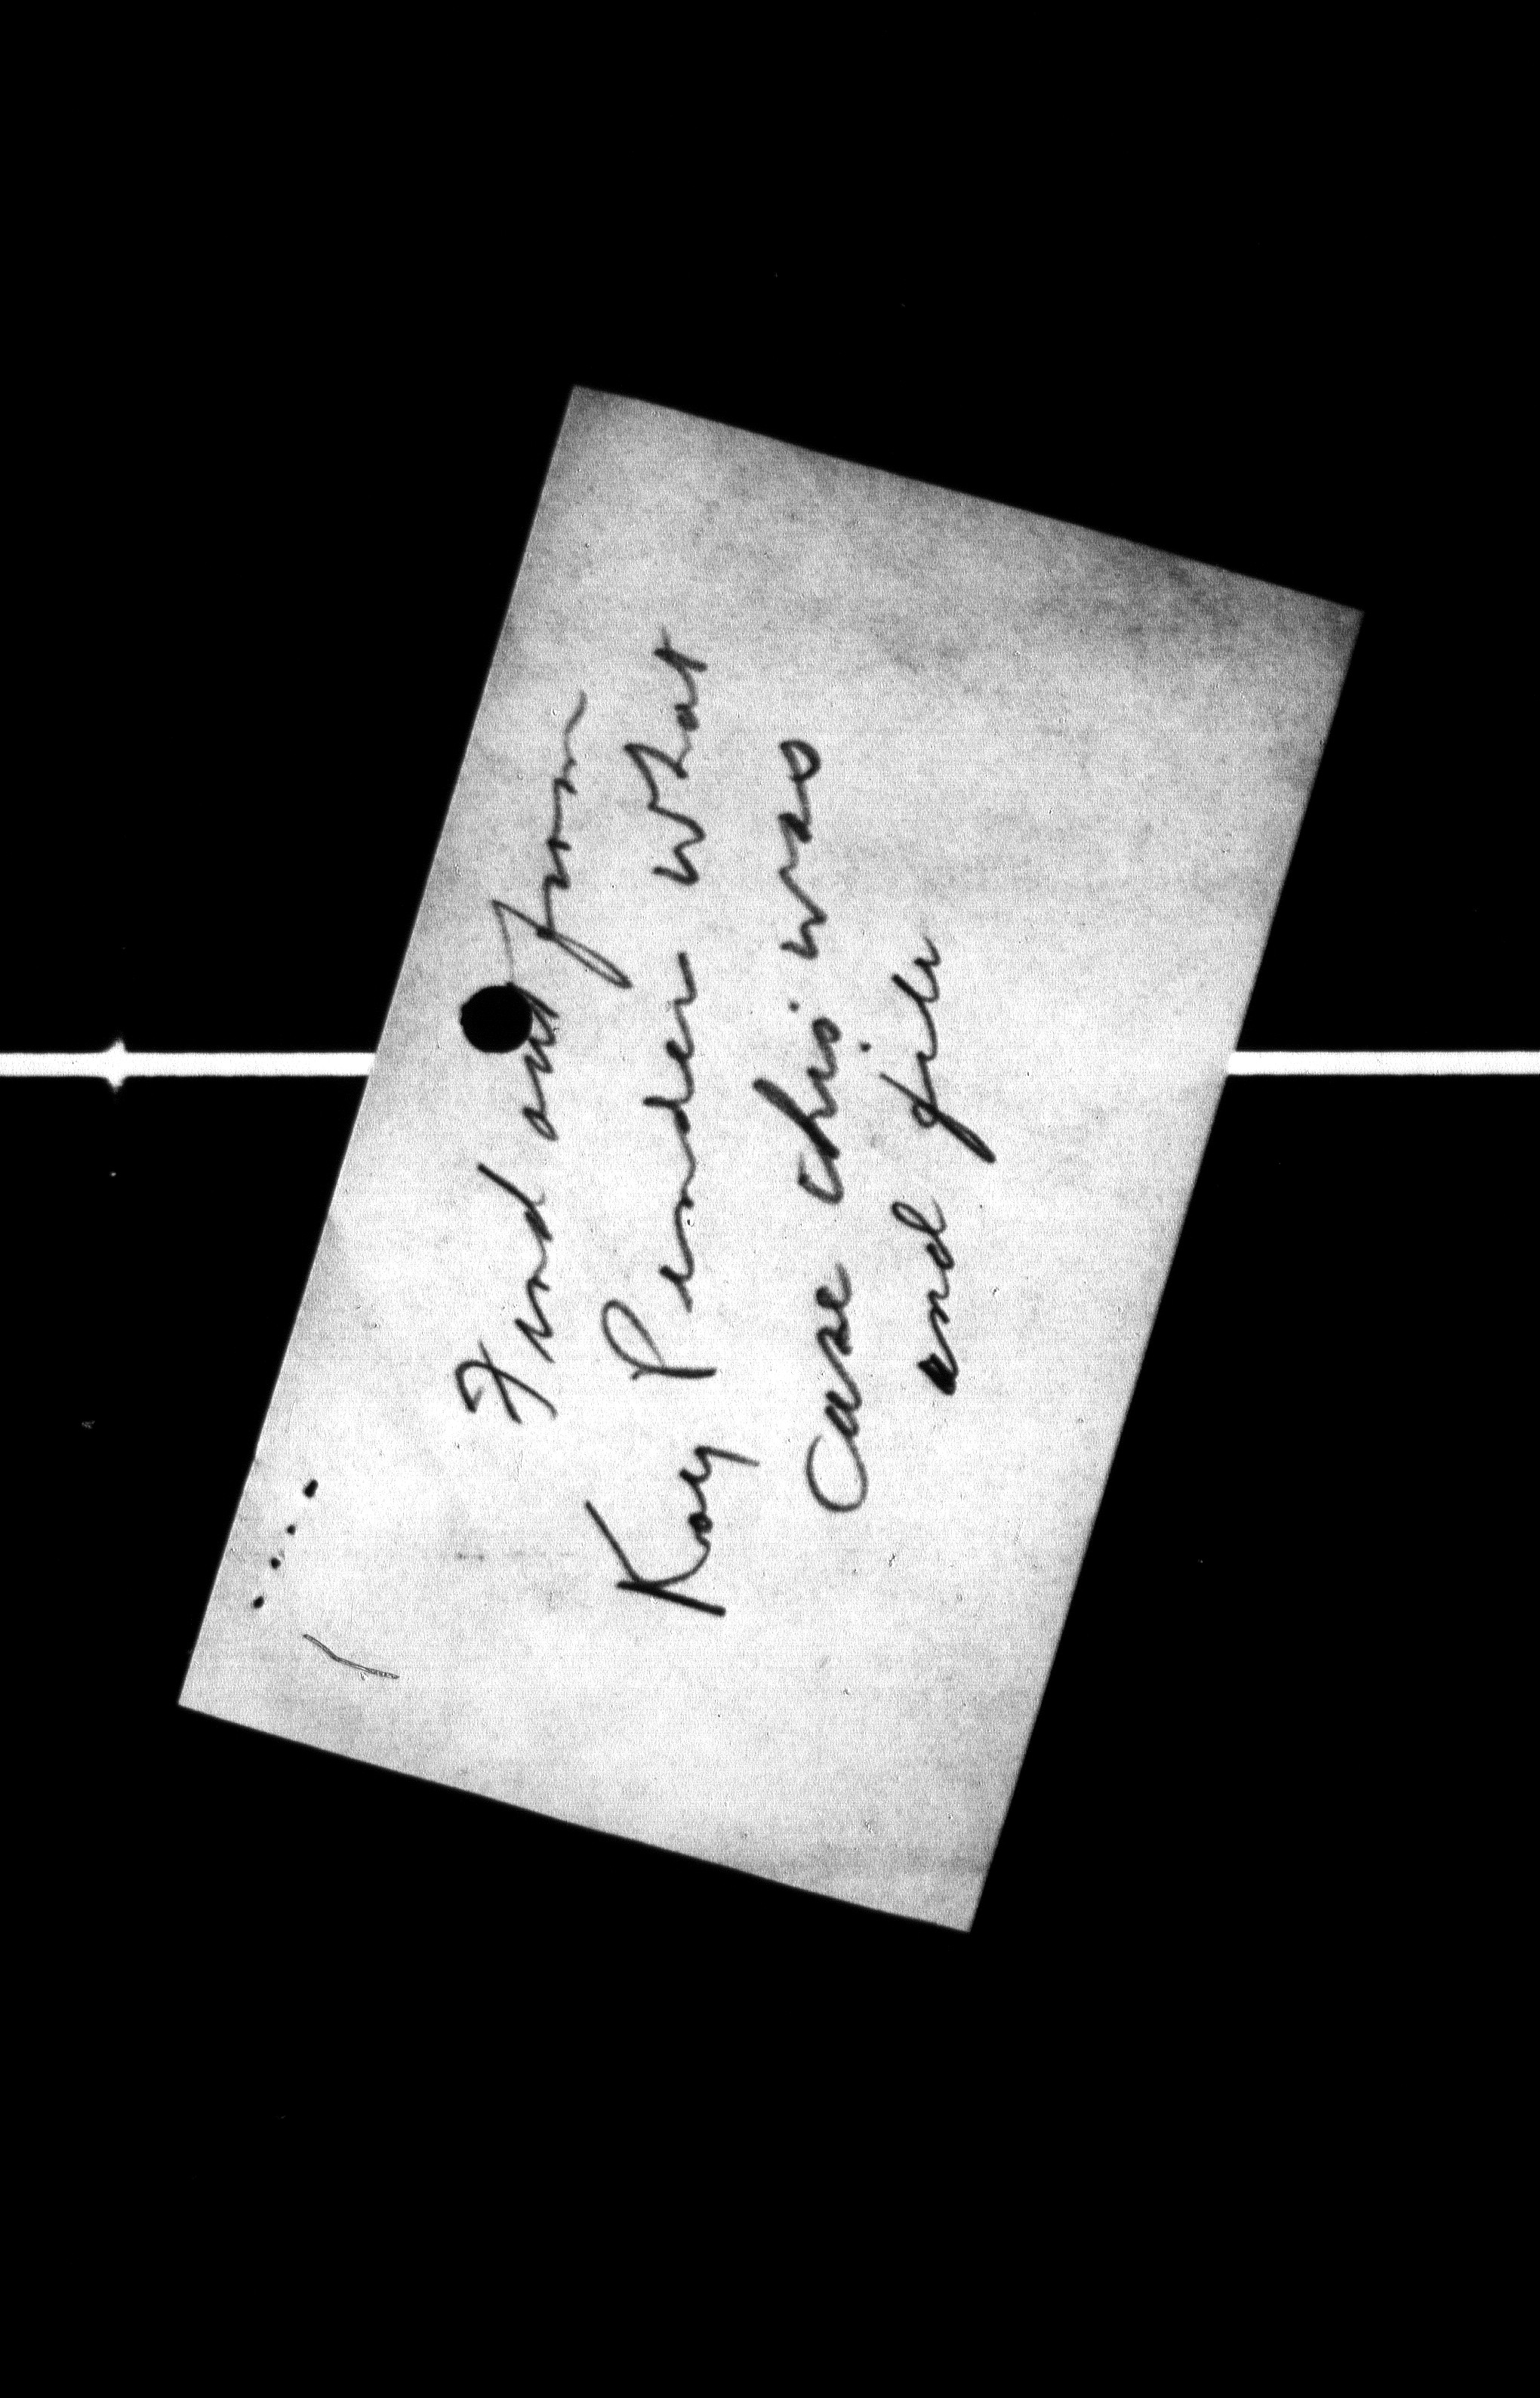 Find out from
Kay Pender what
Case this was
and file